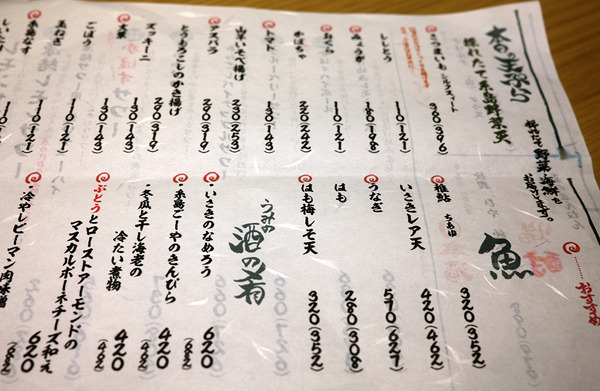 本日の天ぷら
採れたて糸島野菜天
旬の野菜と海鮮を
お品書きです。
おすすめ
さつまいも シルクスイート 360(396)
ししとう 110(121)
みょうが 180(198)
おくら 110(121)
かぼちゃ 220(242)
トマト 130(143)
山芋いそべ揚げ 230(253)
アスパラ 290(319)
とうもろこしのかき揚げ 290(319)
ズッキーニ 130(143)
大葉 130(143)
ごぼう 110(121)
玉ねぎ 110(121)
糸島なす 110(121)
しいたけ
魚
稚鮎 ちあゆ 320(352)
いさきレア天 420(462)
うなぎ 570(627)
はも 280(308)
はも梅しそ天 320(352)
うみの
酒の肴
・いさきのなめろう 620
・糸島ごーやのきんぴら 420
・冬瓜と干し海老の
冷たい煮物 420
ぶどうとローストアーモンドの
マスカルポーネチーズ和え 620
・冷やしピーマン肉味噌